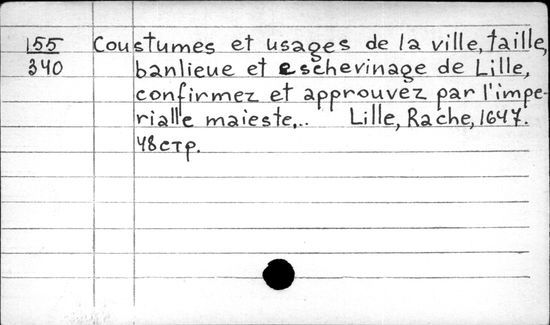 155 Coustumes et usages de la ville, taille,
340 banlieue et eschevinage de Lille,
confirmez et approuvez par l'impe-
rialle maieste... Lille, Rache, 1647.
48стр.